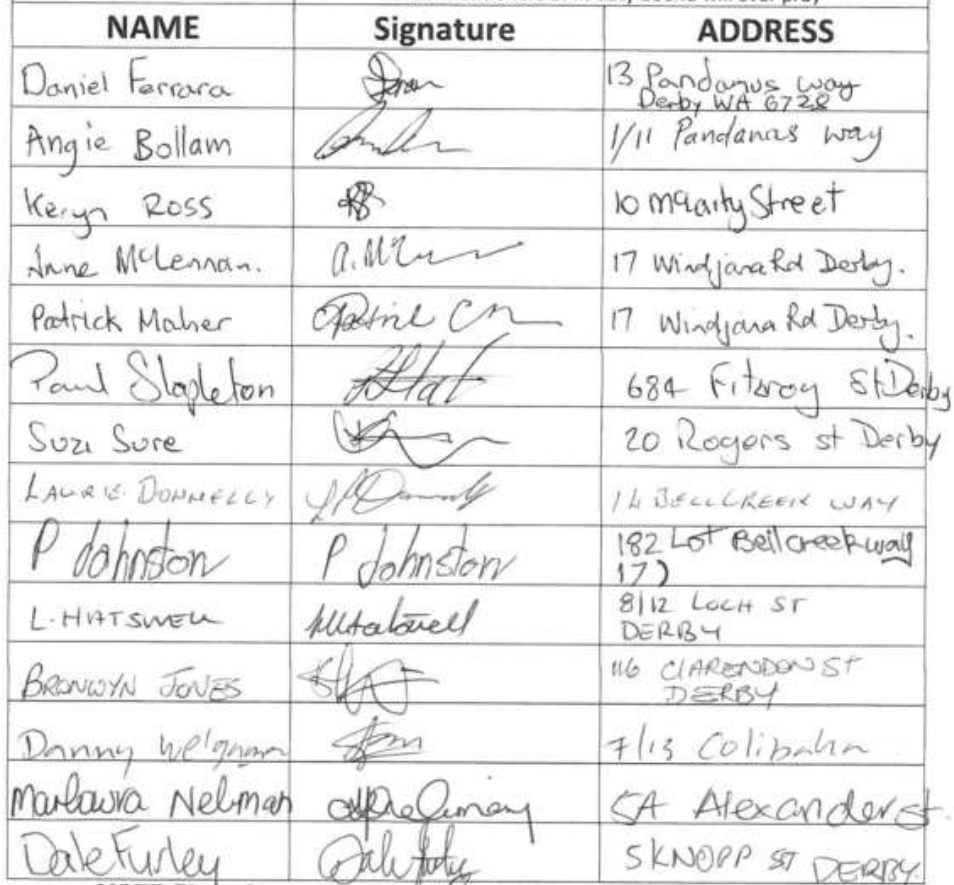 NAME Signature ADDRESS
Daniel Ferrara 13 Pandanus way
Derby WA 6728
Angie Bollam 1/11 Pandanas way
Keryn ROSS 10 Street
Anne McLennan. a. 17 Windjana Rd Derby.
Patrick Maher 17 Windjana Rd Derby.
Paul Stapleton 684 Fitzroy St Derby
Suzi Sure 20 Rogers st Derby
LAURIE DONNELLY BELLCREEK WAY
P Johnston P Johnston 182 Lot Bell creek way
17)
L. HATSWELL 8/12 LOCH ST
DERBY
BRONWYN JONES 116 CLARENDON ST
DERBY
Danny 7/13
Marlowra Neliman 5A Alexander st.
Dale Furley 5 KNOPP ST DERBY.